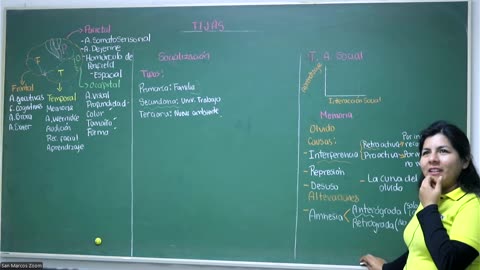 FIJAS
Parietal
- A. Somatosensorial
- A. Dejerine
- Homúnculo de
Penfield
- Espacial
Occipital
A. visual
Profundidad
Color
Tamaño
Forma
F
P
O
T
Frontal
A.
F. Cognitivas
A. Broca
A. Exner
Temporal
Memoria
A. Wernicke
Audición
Rec. facial
Aprendizaje
Socialización
Tipos:
Primaria: Familia
Secundaria: Univ. Trabajo
Terciaria: Nuevo ambiente
T. A. Social
Aprendizaje
Interacción Social
Memoria
Olvido
Causas:
- Interferencia
Retroactiva
Proactiva
- Represión
- Desuso
- La curva del
olvido
Alteraciones
- Amnesia
Anterógrada
Retrógrada
San Marcos Zoom